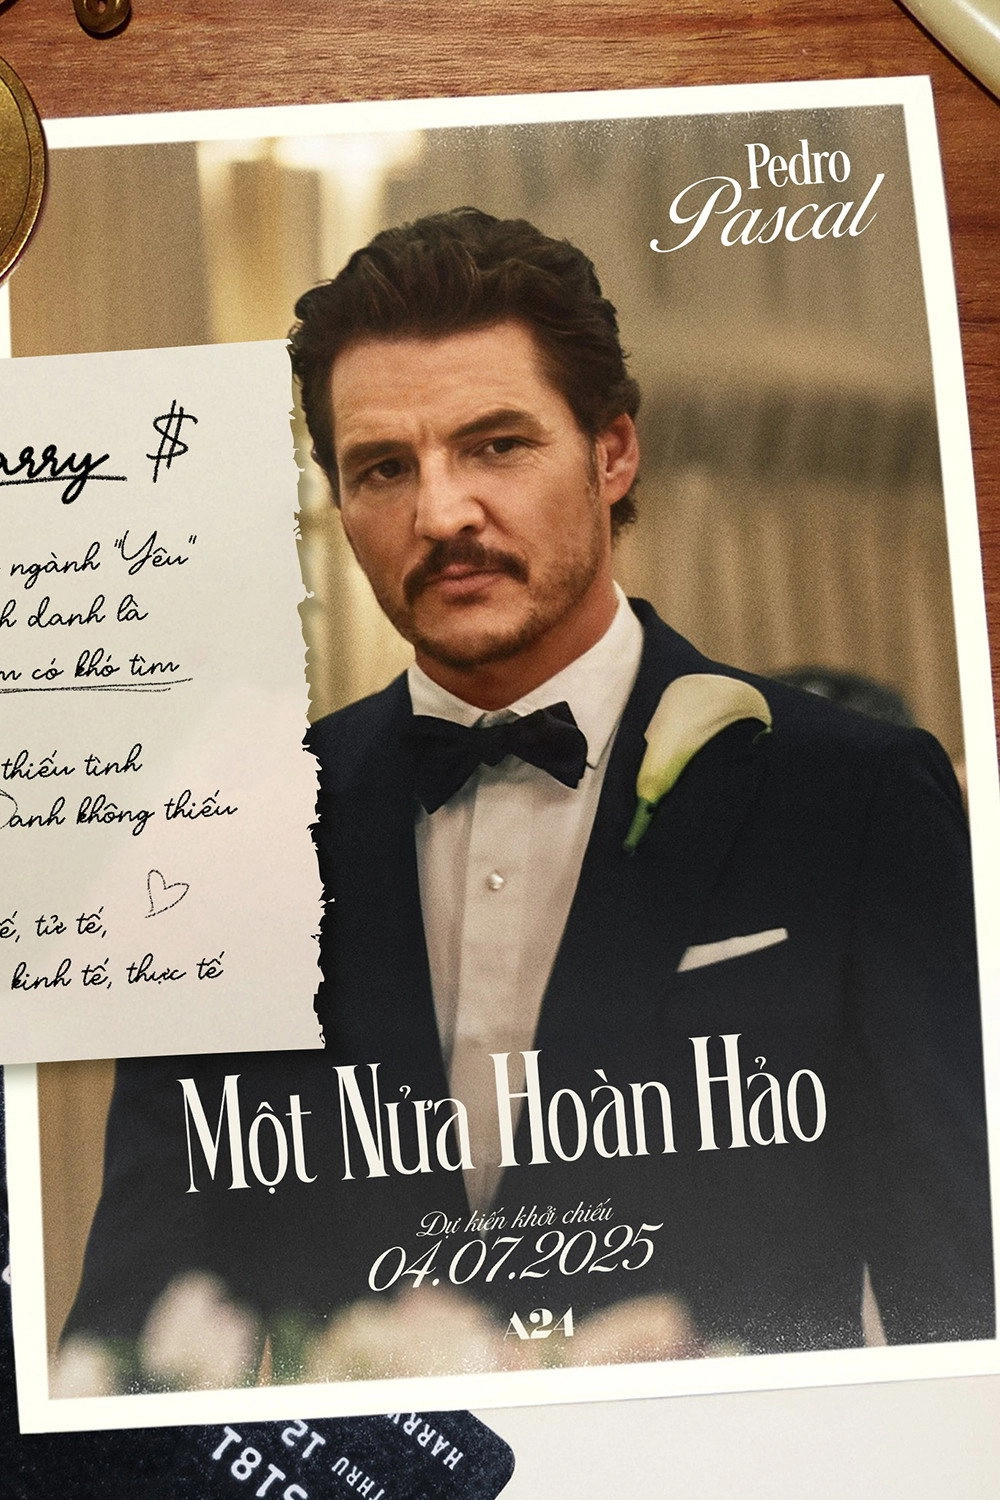 Pedro
Pascal
arry $
ngành "Yêu"
h danh là
m có khó tìm
thiếu tình
Danh không thiếu
ế, tử tế,
kinh tế, thực tế
Một Nửa Hoàn Hảo
Dự kiến khởi chiếu
04.07.2025
A24
HARRY
THRU 12
5181